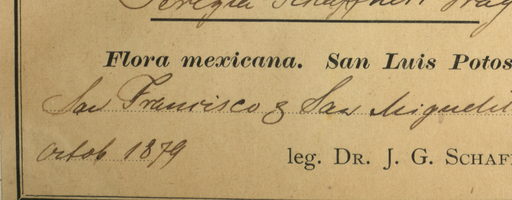 Schaffneri Gray
Flora mexicana. San Luis Potos
San Francisco & San Miguelit
Octob 1879
leg. DR. J. G. SCHAF